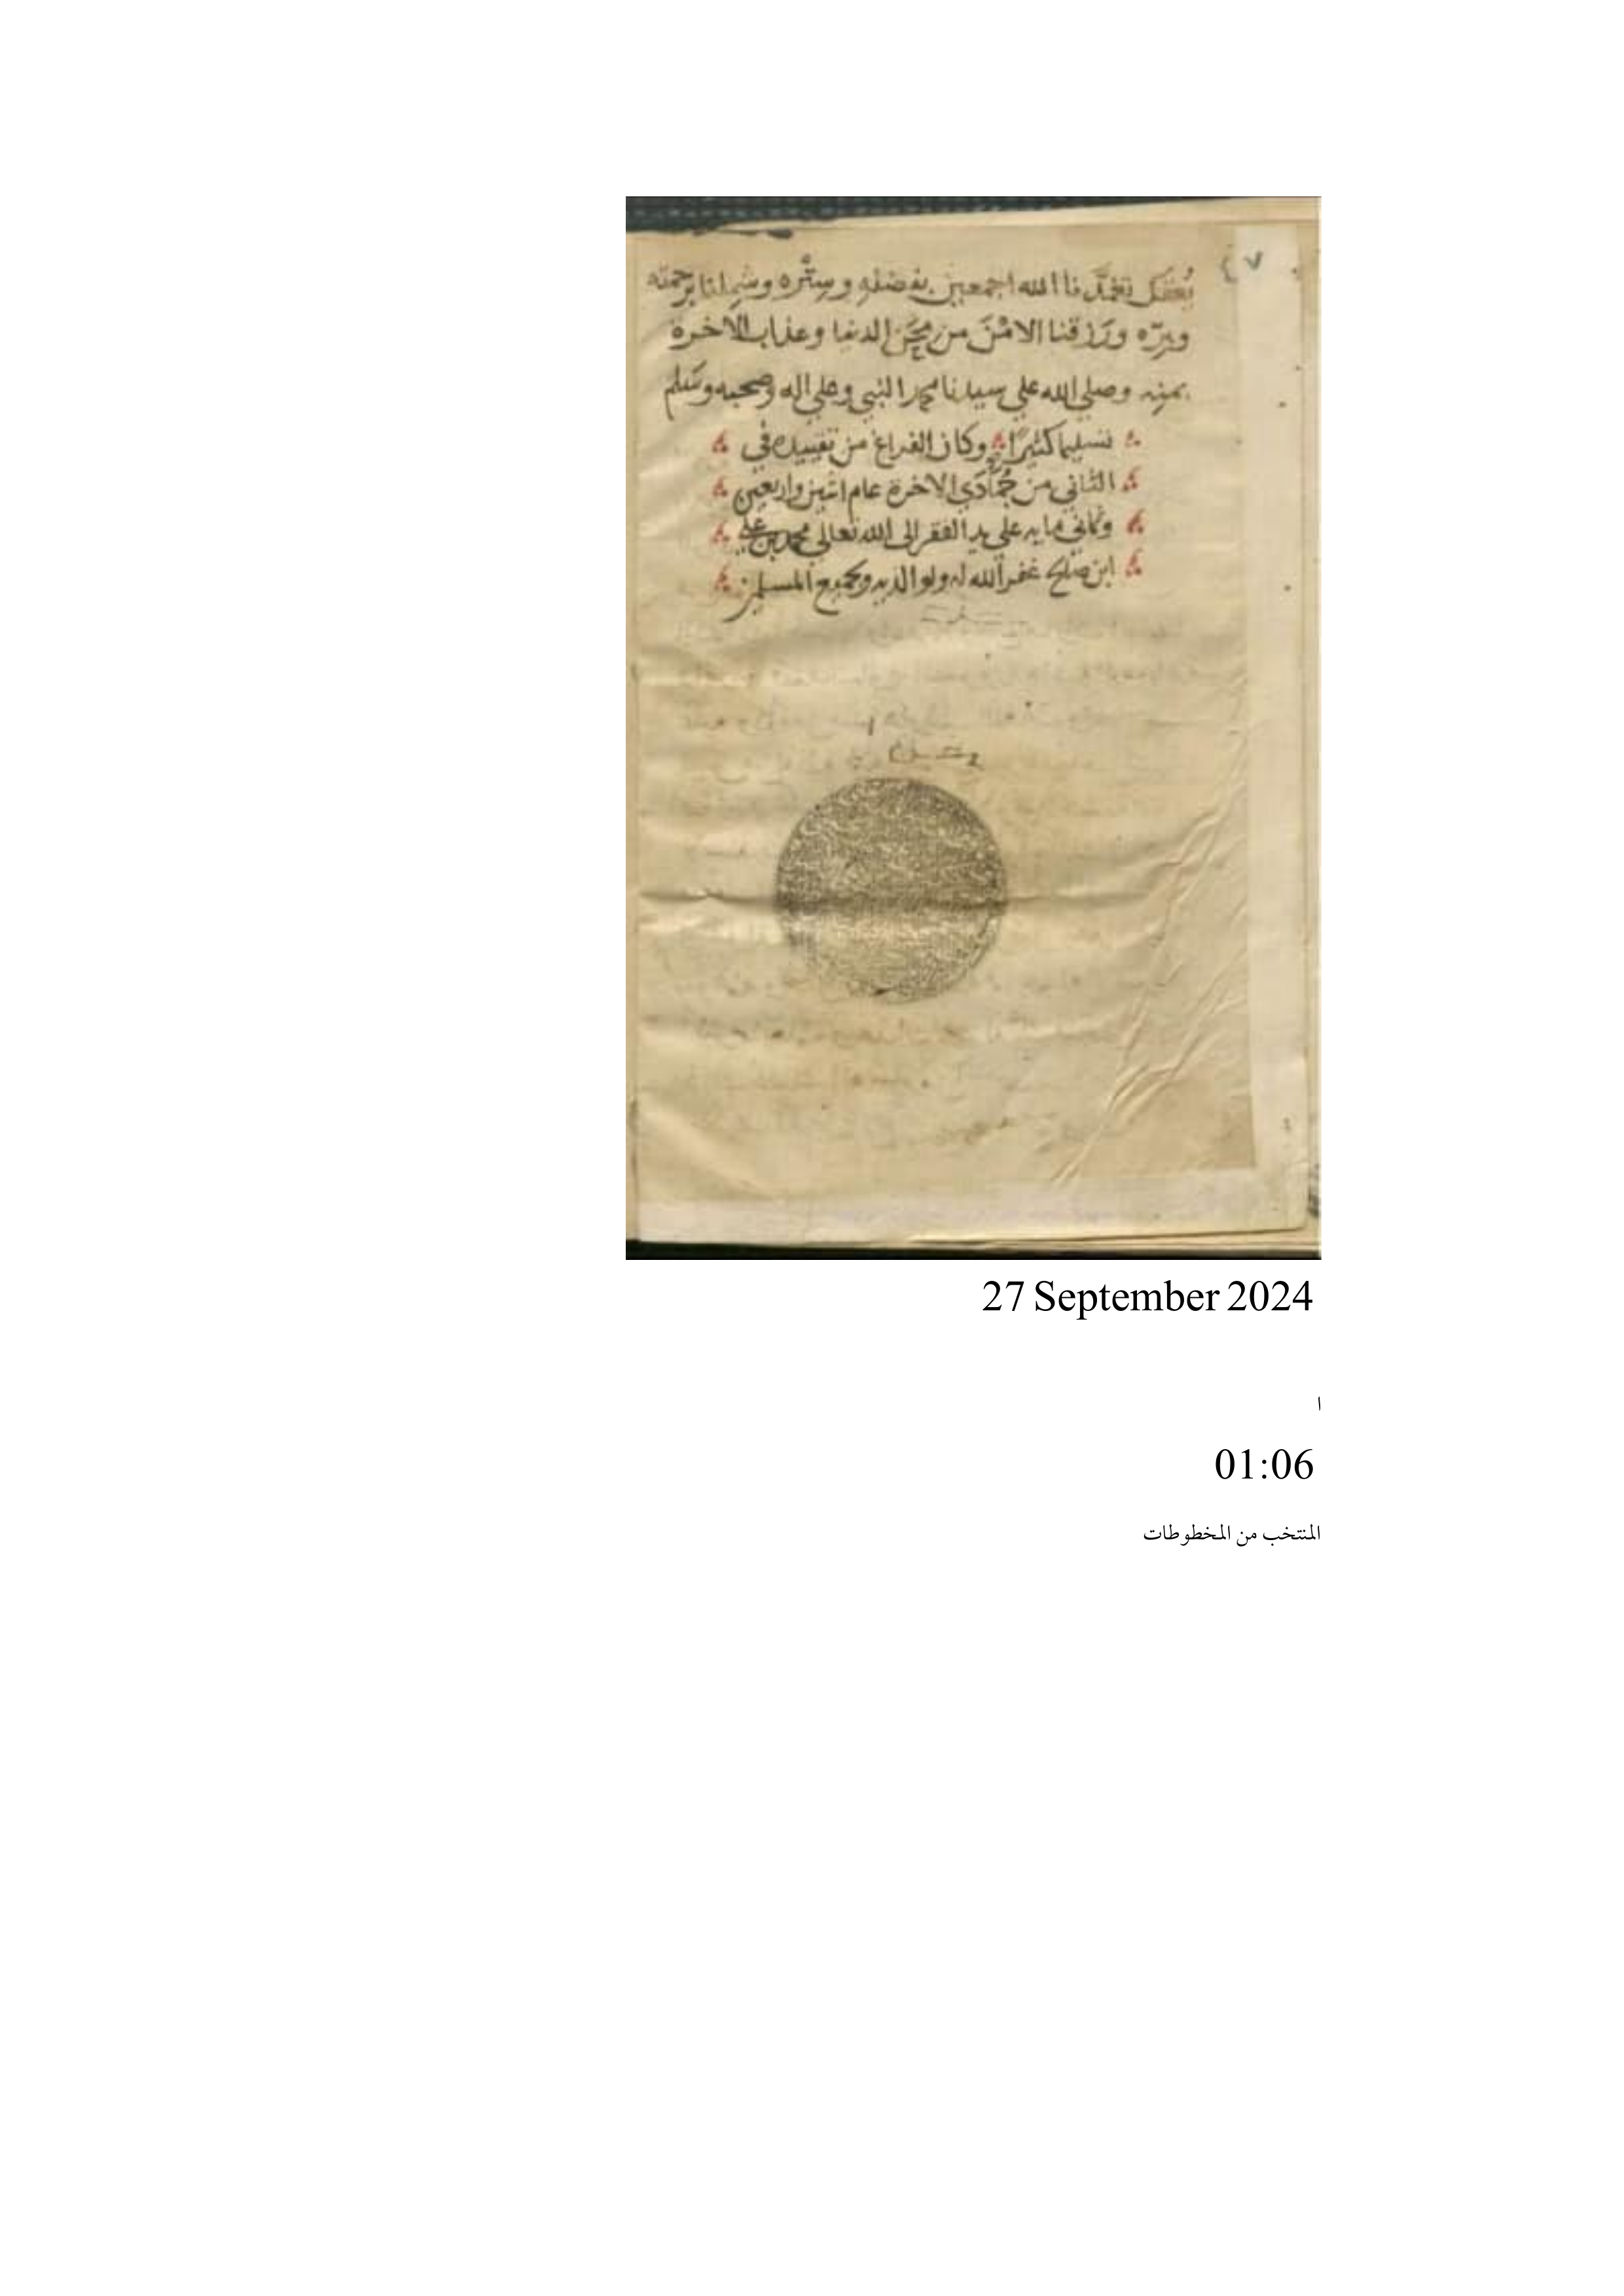 يُعقل تغمَّدنا الله اجمعين بفضله وستْره وشملنا برحمته
وبِرّه ورَزقنا الامْنَ من مِحَن الدنيا وعذاب الاخرة
بمنِه وصلي الله علي سيدنا محمد النبي وعلي اله وصحبه وسَلم
تسليما كثيرًا وكان الفراغ من تقييده في
الثاني من جُمَادَي الاخرة عام اثنين واربعين
وثماني مايه علي يد الفقير الى الله تعالي محمد بن علي
ابن صلح غفر الله له ولوالديه ولجميع المسلمين
27 September 2024
ا
01:06
المنتخب من المخطوطات